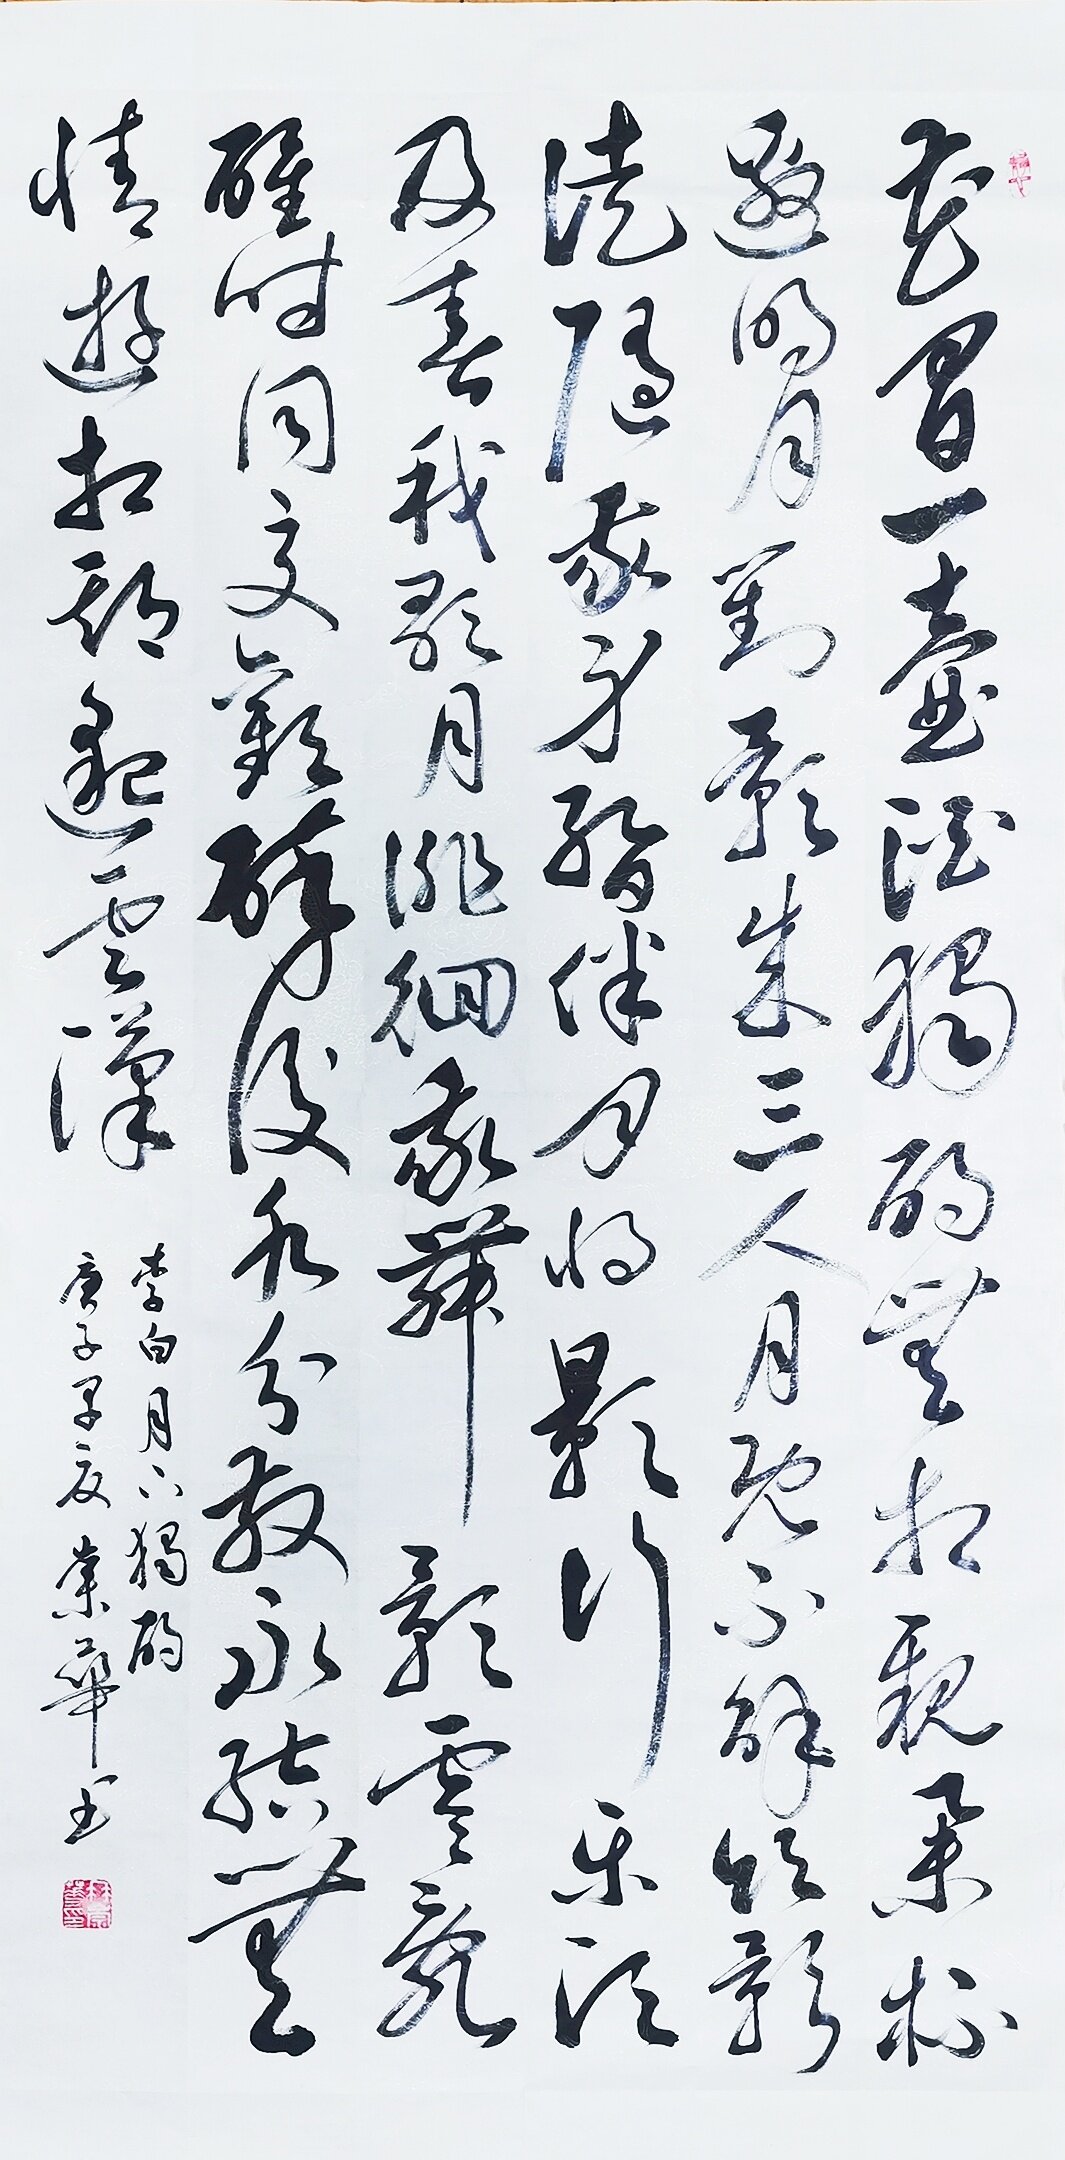 花間一壺酒獨酌無相親舉杯
邀明月對影成三人月既不解飲影
徒隨我身暫伴月將影行樂須
及春我歌月徘徊我舞影零亂
醒時同交歡醉後各分散永結無
情遊相期邈雲漢
李白月下獨酌
庚子早夏華书